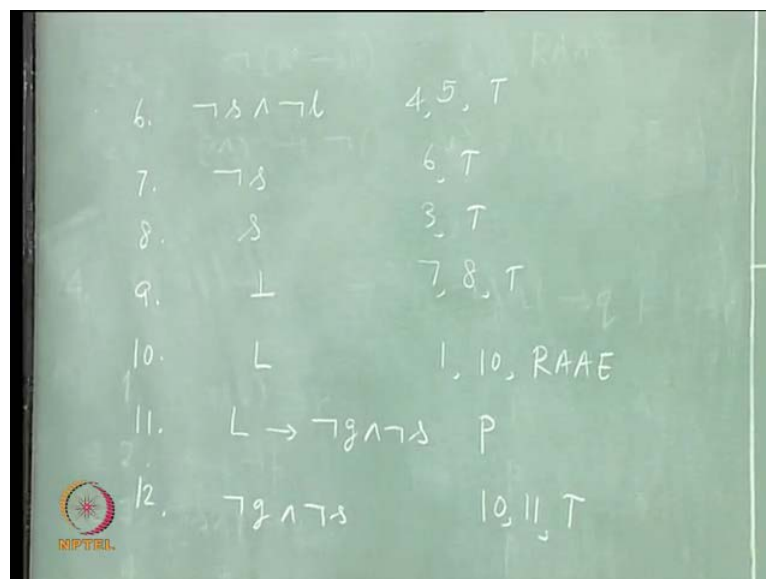 6. ¬s ∧ ¬l 4, 5, T
7. ¬s 6, T
8. s 3, T
9. ⊥ 7, 8, T
10. L 1, 10, RAAE
11. L → ¬g ∧ ¬s P
12. ¬g ∧ ¬s 10, 11, T
NPTEL